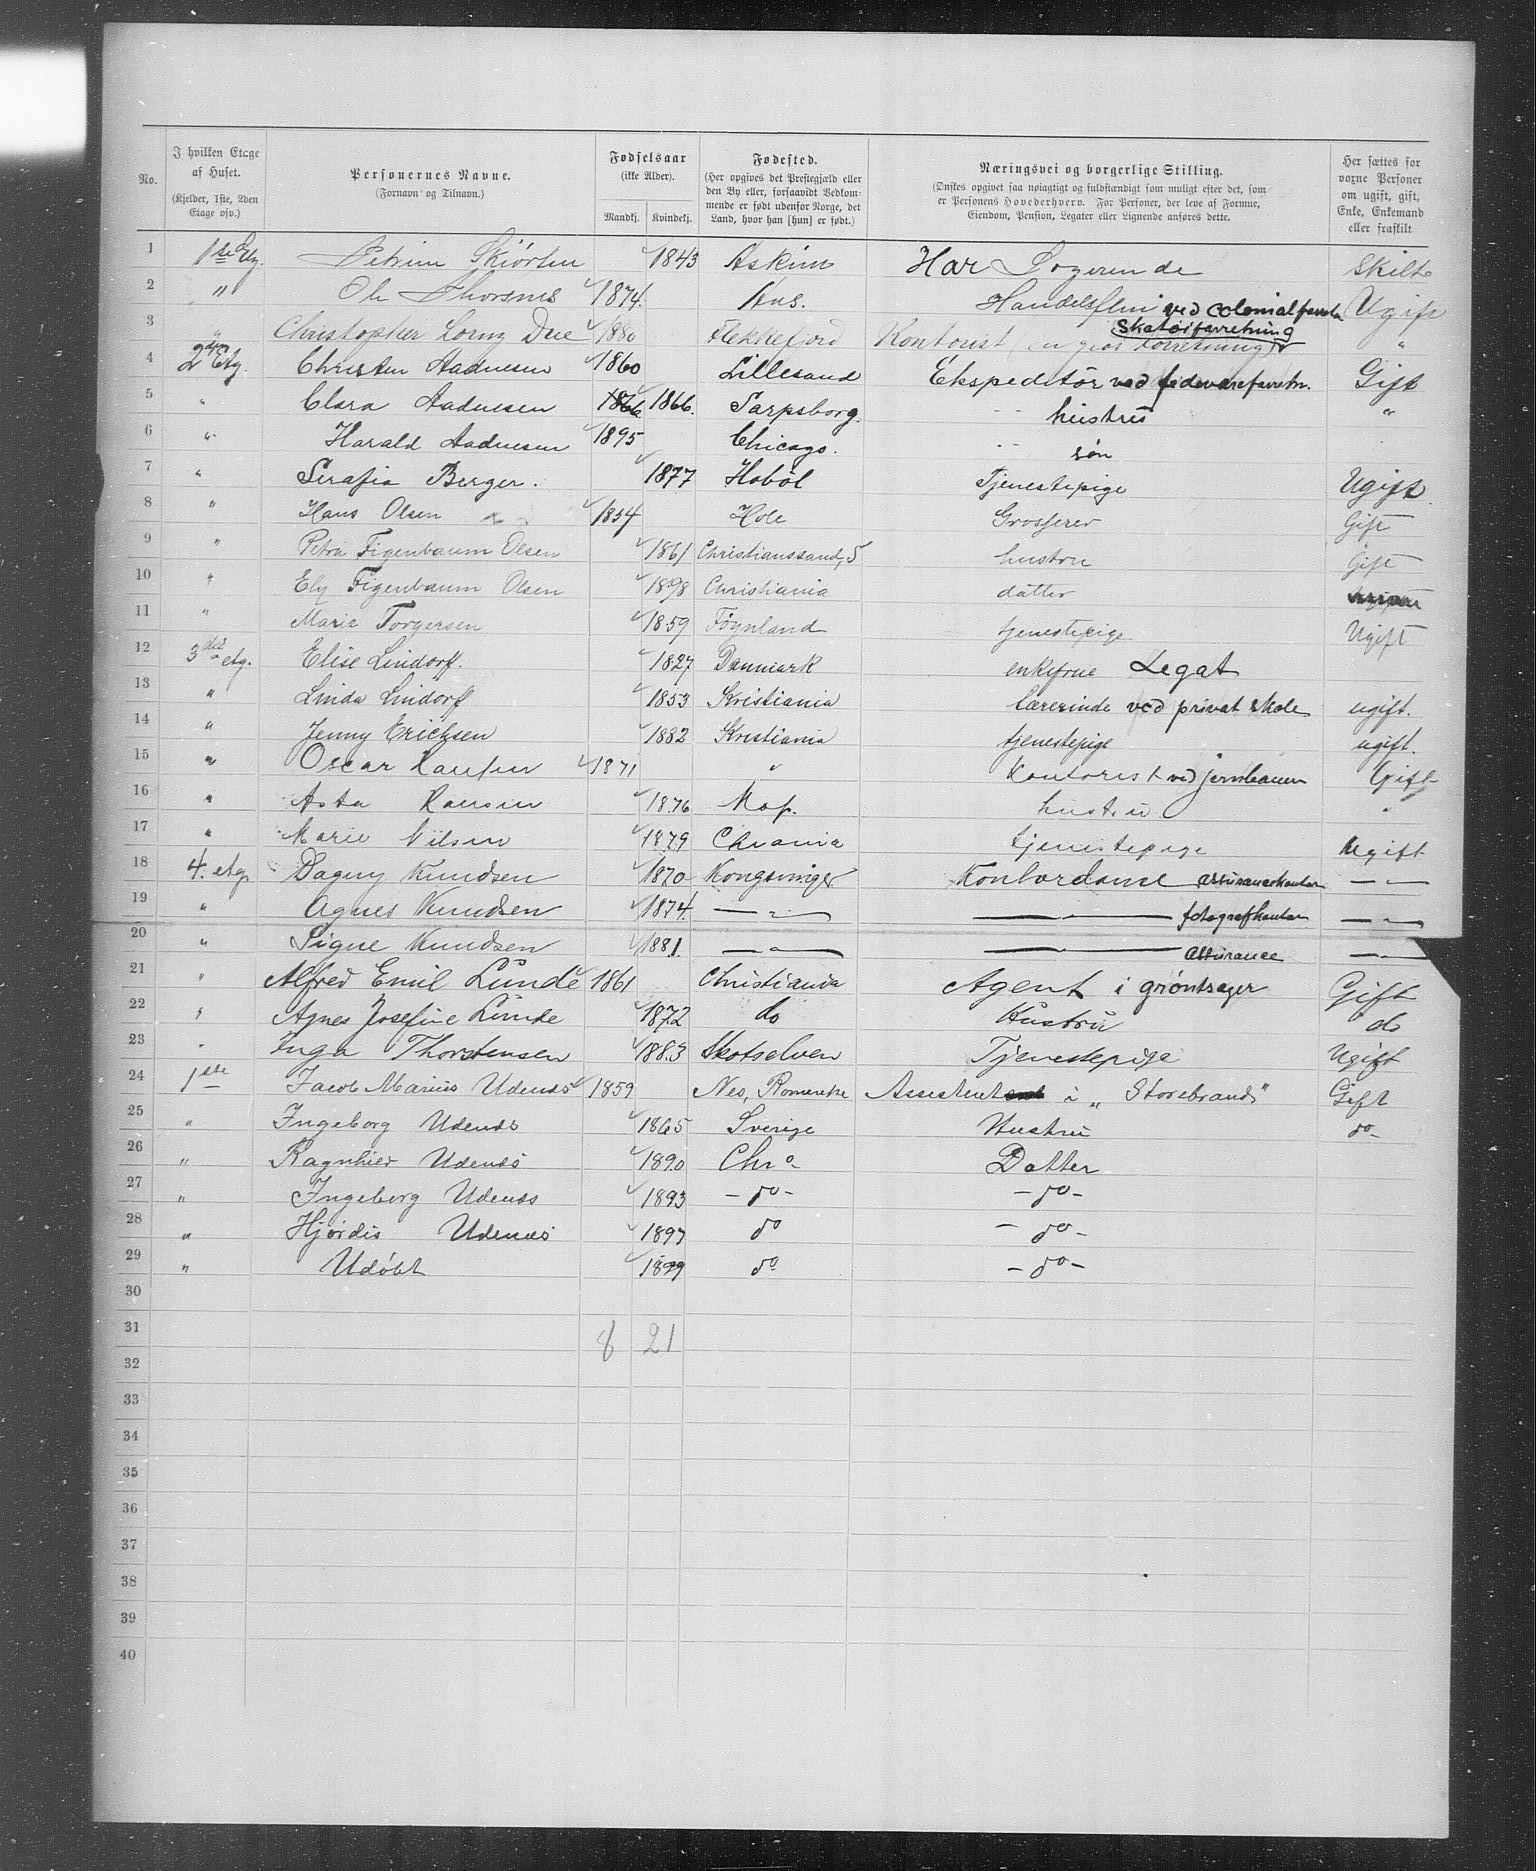 No. | I hvilken Etage af Huset. (Kjelder, 1ste, 2den Etage osv.) | Personernes Navne. (Fornavn og Tilnavn.) | Fødselsaar (ikke Alder). Mandkj. | Kvindekj. | Fødested. (Her opgives det Prestegjæld eller den By eller, forsaavidt Vedkommende er født udenfor Norge, det Land, hvor han [hun] er født.) | Næringsvei og borgerlige Stilling. (Ønskes opgivet saa nøiagtigt og fuldstændigt som muligt efter det, som er Personens Hovederhverv. For Personer, der leve af Formue, Eiendom, Pension, Legater eller Lignende anføres dette. | Her sættes for voxne Personer om ugift, gift, Enke, Enkemand eller fraskilt
1 1ste Etg. Petrine Skiørten 1843 Askim Har Logerende Skilt
2 " Ole Thorsnes 1874. Aas. Handelsflm ved colonialforretn Ugift
3 " Christopher Due 1880 Flekkefjord Kontorist (en gros forretning) "
4 2den Etg. Christen Aadnesen 1860 Lillesand Ekspeditør ved fedevareforretn. Gift
5 " Clara Aadnesen 1866 1866. Sarpsborg. hustru "
6 " Harald Aadnesen 1895 Chicago. søn
7 " Serafia Berger. 1877 Hobøl Tjenestepige Ugift
8 " Hans Olsen 1854 Hole Grosserer Gift
9 " Petra Figenbaum Olsen 1861 Christianssand, S hustru Gift
10 " Ely Figenbaum Olsen 1898 Christiania datter
11 " Marie Torgersen 1859 Føynland tjenestepige Ugift
12 3die etg. Elise Lindorff. 1827 Danmark enkefrue Legat
13 " Linda Lindorff 1853 Kristiania lærerinde ved privat skole ugift.
14 " Jenny Ericksen 1882 Kristiania tjenestepige ugift.
15 " Oscar 1871 " Kontorist ved jernbanen Gift
16 " Asta 1876 Mos. hustru "
17 " Marie Nilsen 1879 Chrania tjenestepige ugift
18 4. etg. Dagny Knudsen 1870 Kongsvinger Kontordame assurancekontor — " —
19 " Agnes Knudsen 1874. — " — — " — fotografkontor — " —
20 " Signe Knudsen 1881. — " — — " — assurance — " —
21 " Alfred Emil Lunde 1861 Christiania Agent i grøntsager Gift
22 " Agnes Josefine Lunde 1872 do Hustru do
23 " Inga Thorstensen 1883 Skotselven Tjenestepige Ugift
24 1ste Jacob Marius Udenæs 1859 Nes, Romerike Assistent i „ Storebrand" Gift
25 " Ingeborg Udenæs 1865 Sverige Hustru do-
26 " Ragnhild Udenæs 1890 Chr.a- Datter
27 " Ingeborg Udenæs 1893 - do - - do -
28 " Hjørdis Udenæs 1897 do - do -
29 " Udøbt 1899 do - do -
30
31 8 21
32
33
34
35
36
37
38
39
40